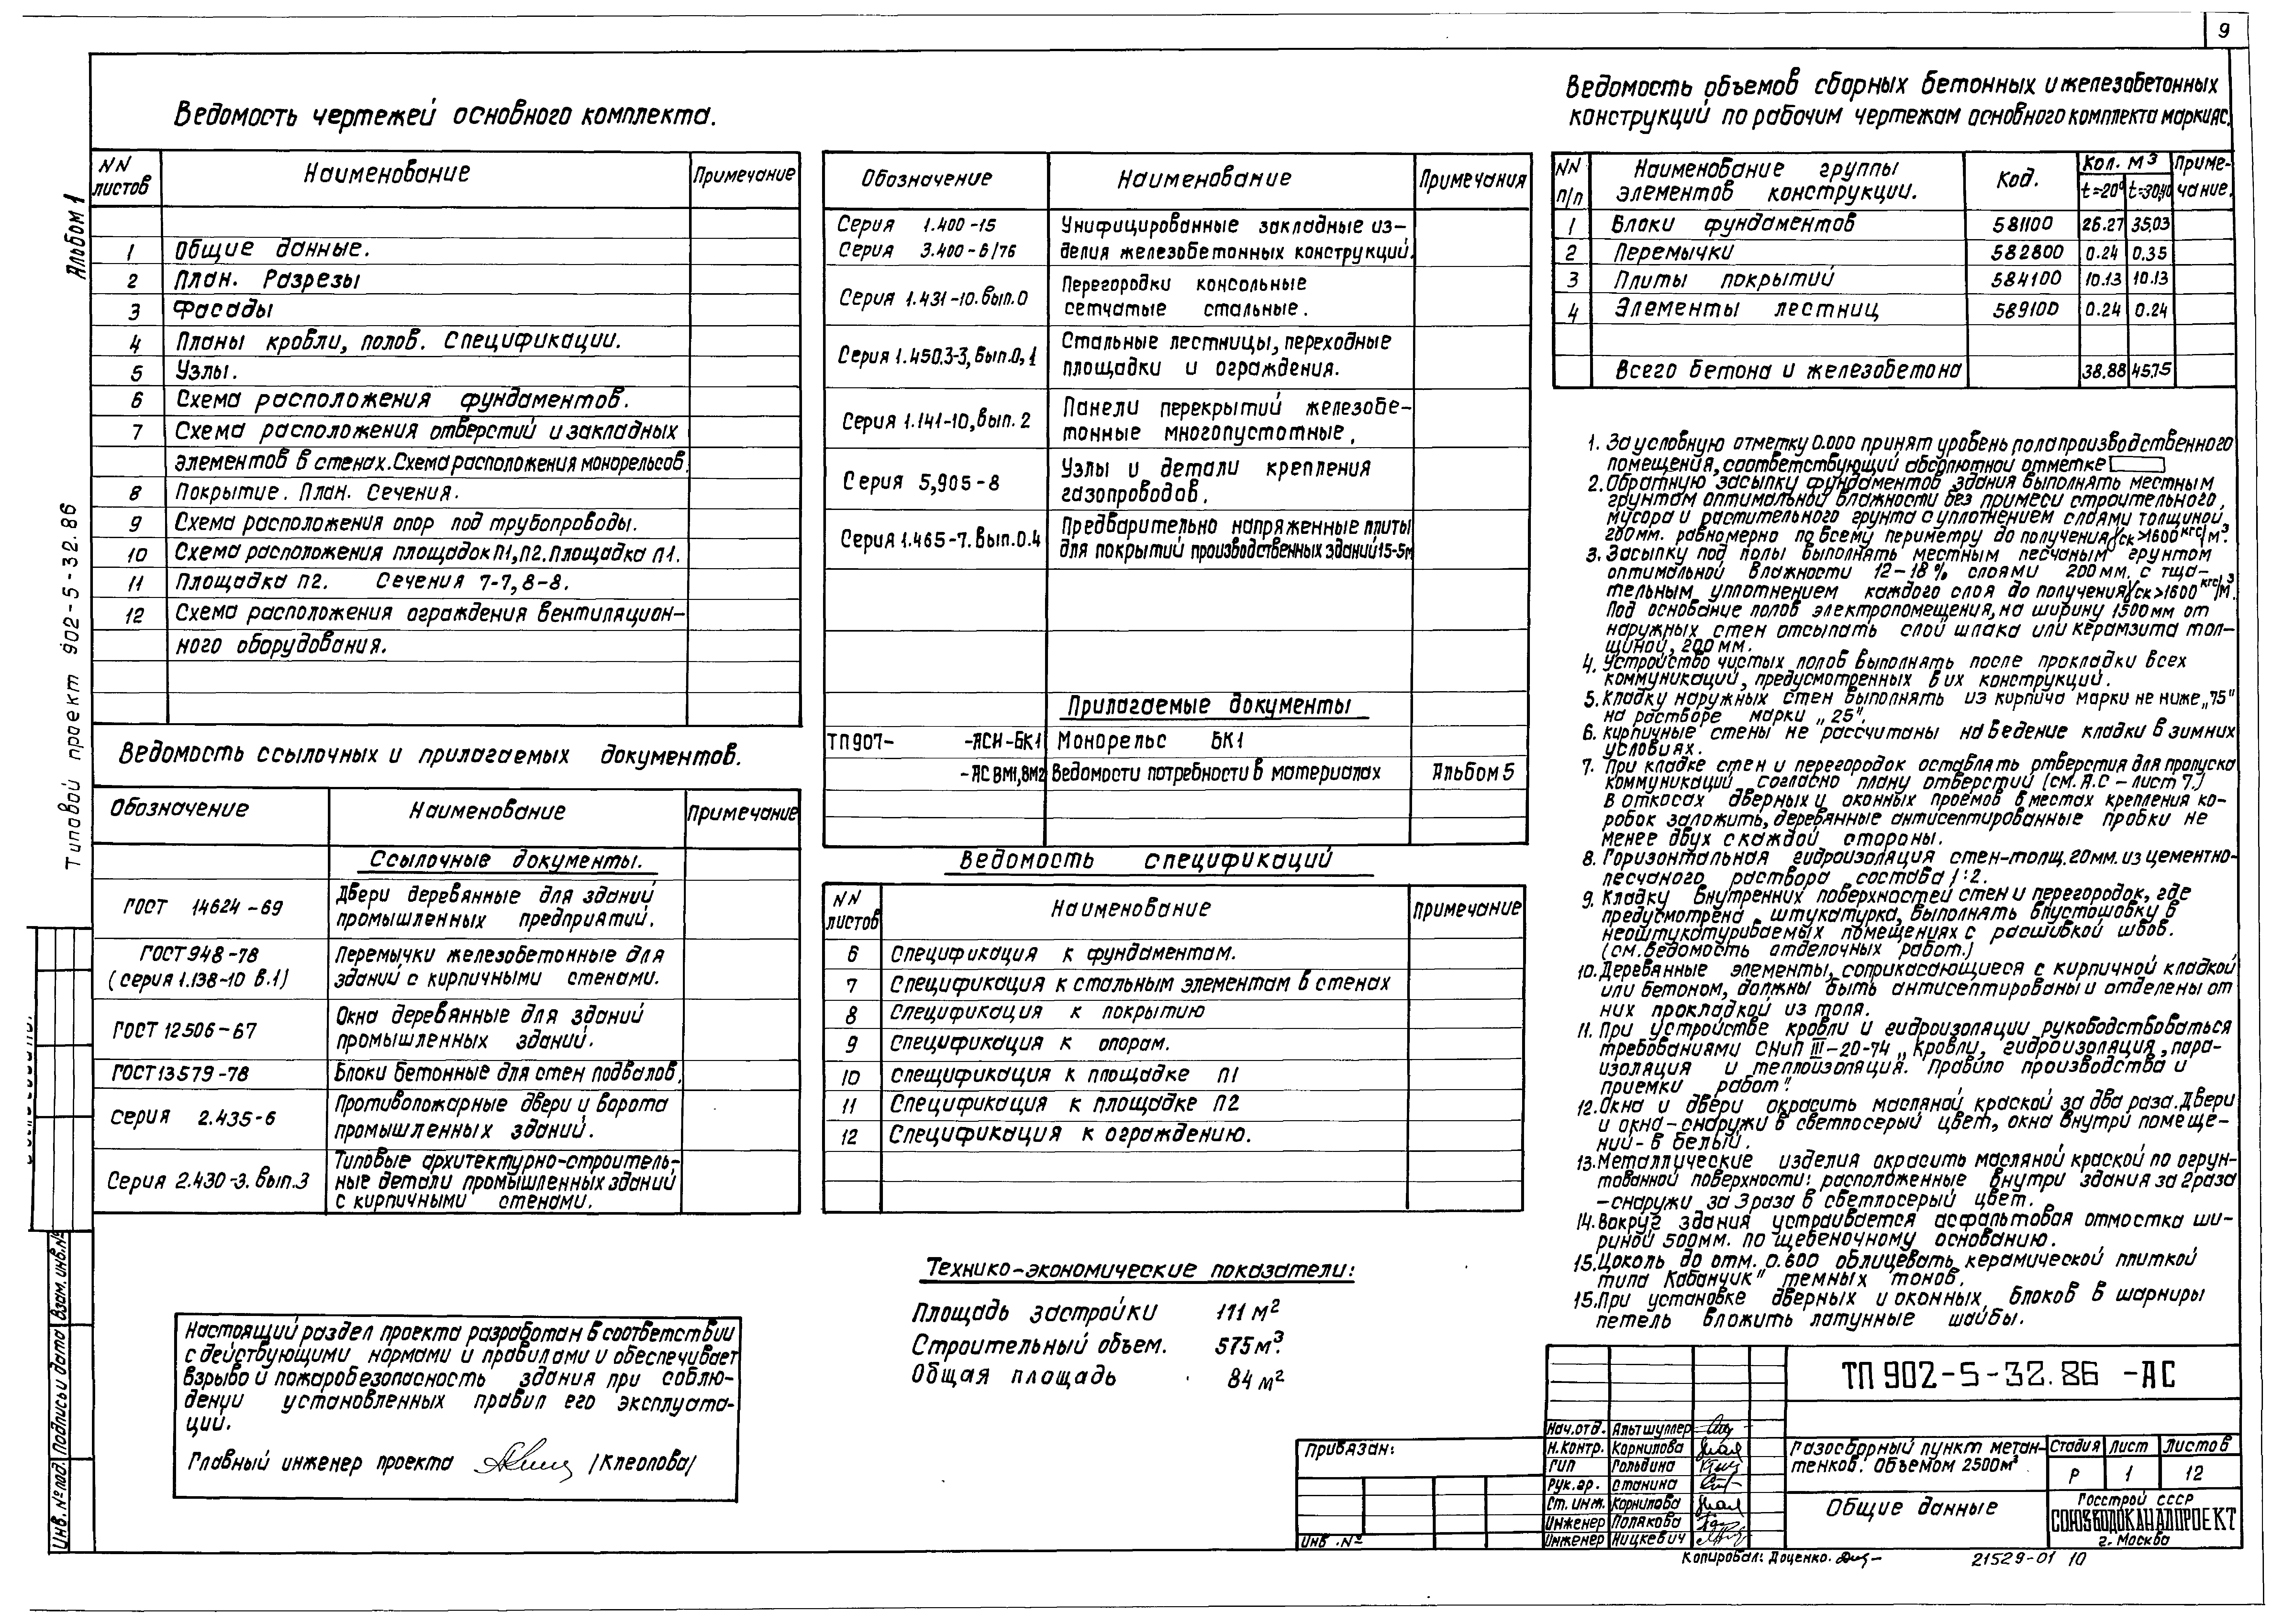 9
Альбом 1
Типовой проект 902-5-32.86
Ведомость чертежей основного комплекта.
NN листов | Наименование | Примечание
1 | Общие данные.
2 | План. Разрезы
3 | Фасады
4 | Планы кровли, полов. Спецификации.
5 | Узлы.
6 | Схема расположения фундаментов.
7 | Схема расположения отверстий и закладных
элементов в стенах. Схема расположения монорельсов.
8 | Покрытие. План. Сечения.
9 | Схема расположения опор под трубопроводы.
10 | Схема расположения площадок П1, П2. Площадка П1.
11 | Площадка П2. Сечения 7-7, 8-8.
12 | Схема расположения ограждения вентиляцион-
ного оборудования.
Ведомость ссылочных и прилагаемых документов.
Обозначение | Наименование | Примечание
Ссылочные документы.
ГОСТ 14624-69 | Двери деревянные для зданий
промышленных предприятий.
ГОСТ 948-78 | Перемычки железобетонные для
(серия 1.138-10 в.1) | зданий с кирпичными стенами.
ГОСТ 12506-67 | Окна деревянные для зданий
промышленных зданий.
ГОСТ 13579-78 | Блоки бетонные для стен подвалов.
серия 2.435-6 | Противопожарные двери и ворота
промышленных зданий.
Серия 2.430-3. вып.3 | Типовые архитектурно-строитель-
ные детали промышленных зданий
с кирпичными стенами.
Настоящий раздел проекта разработан в соответствии
с действующими нормами и правилами и обеспечивает
взрыво и пожаробезопасность здания при соблю-
дении установленных правил его эксплуата-
ции.
Главный инженер проекта /Клеопова/
Обозначение | Наименование | Примечания
Серия 1.400-15 | Унифицированные закладные из-
Серия 3.400-6/76 | делия железобетонных конструкций.
Серия 1.431-10. вып.0 | Перегородки консольные
сетчатые стальные.
Серия 1.450.3-3, вып.0, 1 | Стальные лестницы, переходные
площадки и ограждения.
Серия 1.141-10, вып. 2 | Панели перекрытий железобе-
тонные многопустотные.
Серия 5,905-8 | Узлы и детали крепления
газопроводов.
Серия 1.465-7. вып.0.4 | Предварительно напряженные плиты
для покрытий производственных зданий 15-5м
Прилагаемые документы
ТП 907- -АСИ-БК1 | Монорельс БК1
-АС ВМ1, ВМ2 | Ведомости потребности в материалах | Альбом 5
Ведомость спецификаций
NN листов | Наименование | Примечание
6 | Спецификация к фундаментам.
7 | Спецификация к стальным элементам в стенах
8 | Спецификация к покрытию
9 | Спецификация к опорам.
10 | спецификация к площадке П1
11 | Спецификация к площадке П2
12 | Спецификация к ограждению.
Технико-экономические показатели:
Площадь застройки 111 м²
Строительный объем. 575 м³.
Общая площадь 84 м²
Ведомость объемов сборных бетонных и железобетонных
конструкций по рабочим чертежам основного комплекта марки АС.
NN п/п | Наименование группы элементов конструкции. | Код. | Кол. м³ | Приме-чание.
t=20° | t=30,40
1 | Блоки фундаментов | 581100 | 26.27 | 35,03
2 | Перемычки | 582800 | 0.24 | 0.35
3 | Плиты покрытий | 584100 | 10.13 | 10.13
4 | Элементы лестниц | 589100 | 0.24 | 0.24
Всего бетона и железобетона | 38.88 | 45.75
1. За условную отметку 0.000 принят уровень пола производственного
помещения, соответствующий абсолютной отметке
2. Обратную засыпку фундаментов здания выполнять местным
грунтом оптимальной влажности без примеси строительного,
мусора и растительного грунта с уплотнением слоями толщиной
200мм. равномерно по всему периметру до получения γск>1600 кгс/м³.
3. Засыпку под полы выполнять местным песчаным грунтом
оптимальной влажности 12-18% слоями 200мм. с тща-
тельным уплотнением каждого слоя до получения γск>1600 кгс/м³.
Под основание полов электропомещения, на ширину 1500мм от
наружных стен отсыпать слой шлака или керамзита тол-
щиной, 200мм.
4. Устройство чистых полов выполнять после прокладки всех
коммуникаций, предусмотренных в их конструкций.
5. Кладку наружных стен выполнять из кирпича марки не ниже „75"
на растворе марки „25".
6. Кирпичные стены не рассчитаны на ведение кладки в зимних
условиях.
7. При кладке стен и перегородок оставлять отверстия для пропуска
коммуникаций согласно плану отверстий (см. А.С - лист 7.)
В откосах дверных и оконных проемов в местах крепления ко-
робок заложить, деревянные антисептированные пробки не
менее двух с каждой стороны.
8. Горизонтальная гидроизоляция стен-толщ. 20мм. из цементно-
песчаного раствора состава 1:2.
9. Кладку внутренних поверхностей стен и перегородок, где
предусмотрена штукатурка, выполнять впустошовку в
неоштукатуриваемых помещениях с расшивкой швов.
(см. ведомость отделочных работ.)
10. Деревянные элементы, соприкасающиеся с кирпичной кладкой
или бетоном, должны быть антисептированы и отделены от
них прокладкой из толя.
11. При устройстве кровли и гидроизоляции руководствоваться
требованиями СНиП III-20-74 „Кровли, гидроизоляция, паро-
изоляция и теплоизоляция. Правила производства и
приемки работ".
12. Окна и двери окрасить масляной краской за два раза. Двери
и окна-снаружи в светлосерый цвет, окна внутри помеще-
ний-в белый.
13. Металлические изделия окрасить масляной краской по огрун-
тованной поверхности: расположенные внутри здания за 2 раза
-снаружи за 3 раза в светлосерый цвет.
14. Вокруг здания устраивается асфальтовая отмостка ши-
риной 500мм. по щебеночному основанию.
15. Цоколь до отм. 0.600 облицевать керамической плиткой
типа Кабанчик" темных тонов.
15. При установке дверных и оконных блоков в шарниры
петель вложить латунные шайбы.
ТП 902-5-32.86 -АС
Нач.отд. | Альтшуллер
Н.контр. | Корнилова
ГИП | Гольдина
Рук.гр. | Станина
Ст. инж. | Корнилова
Инженер | Полякова
Инженер | Ницкевич
Газосборный пункт метан-
тенков. Объемом 2500м³
Стадия | Лист | Листов
Р | 1 | 12
Общие данные
Госстрой СССР
СОЮЗВОДОКАНАЛПРОЕКТ
г. Москва
Привязан:
Инв. №
Инв. № под. | Подпись и дата | Взам. инв. №
Копировал: Доценко.
21529-01 10